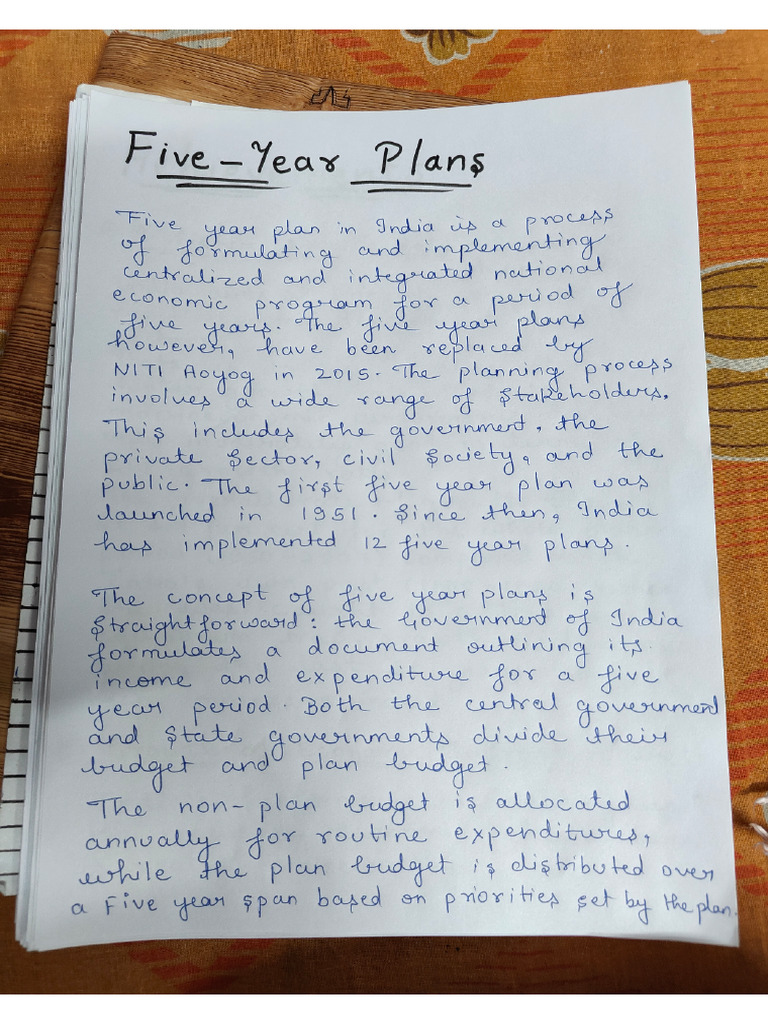 Five-Year Plans
Five year plan in India is a process
of formulating and implementing
centralized and integrated national
economic program for a period of
five years. The five year plans
however, have been replaced by
NITI Aoyog in 2015. The planning process
involves a wide range of stakeholders.
This includes the government, the
private sector, civil society, and the
public. The first five year plan was
launched in 1951. Since then, India
has implemented 12 five year plans.
The concept of five year plans is
straightforward: the Government of India
formulates a document outlining its
income and expenditure for a five
year period. Both the central government
and state governments divide their
budget and plan budget.
The non-plan budget is allocated
annually for routine expenditures,
while the plan budget is distributed over
a Five year span based on priorities set by the plan.